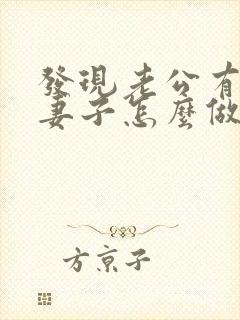 發現老公有
妻子怎麼做
方京子